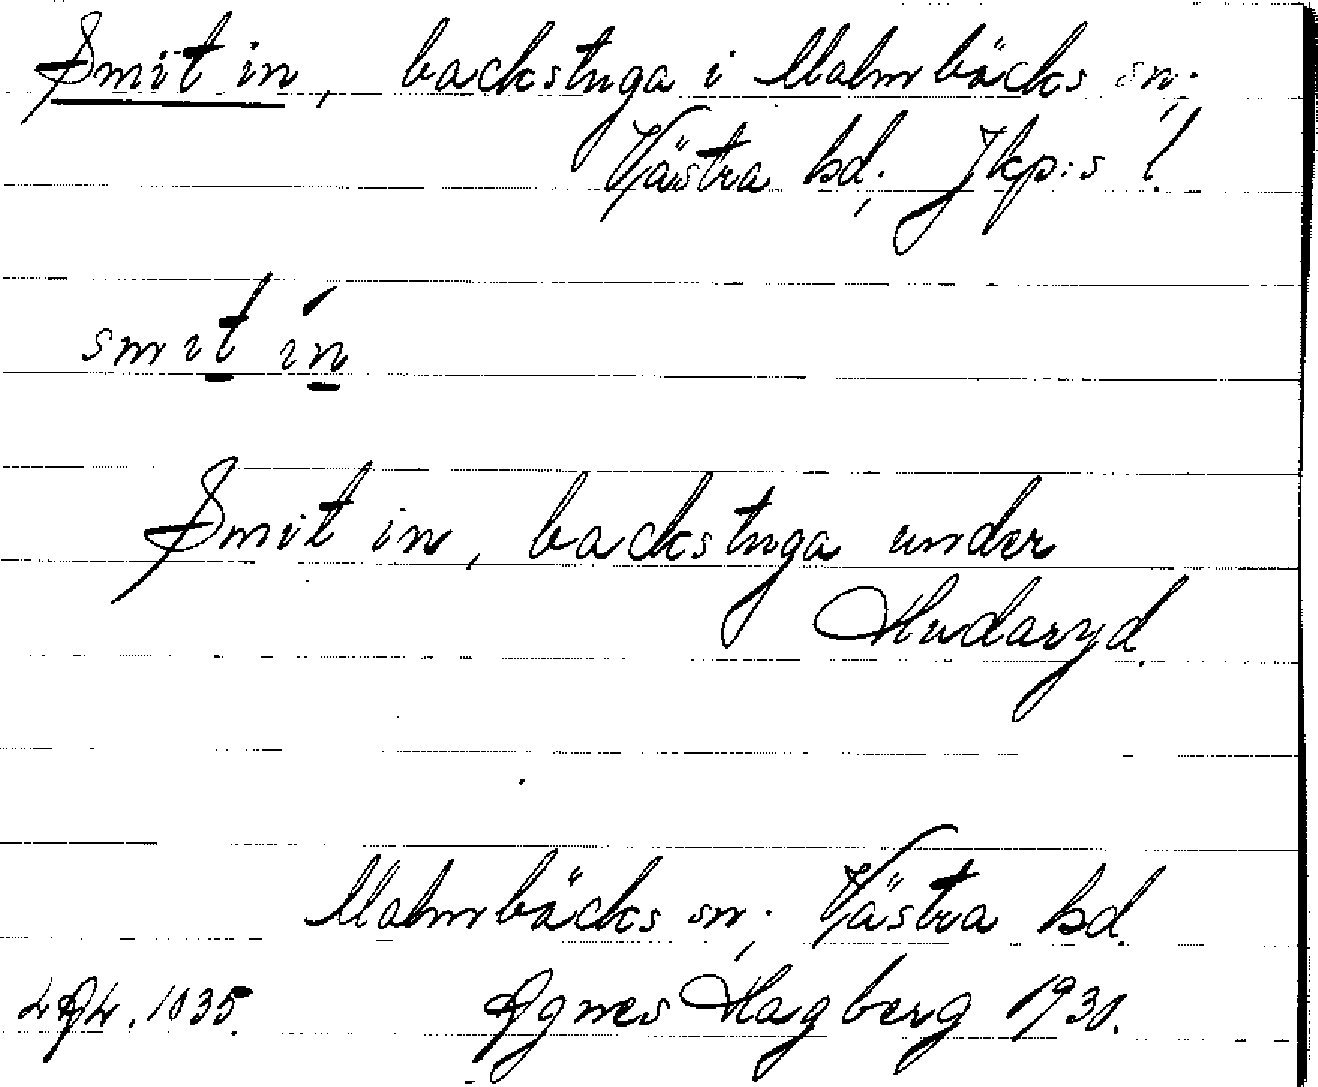 Smit in, backstuga i Malmbäcks sn;
Västra hd; Jkp:s l.
smit ín
Smit in, backstuga under
Hudaryd.
Malmbäcks sn; Västra hd.
Agnes Hagberg 1930.